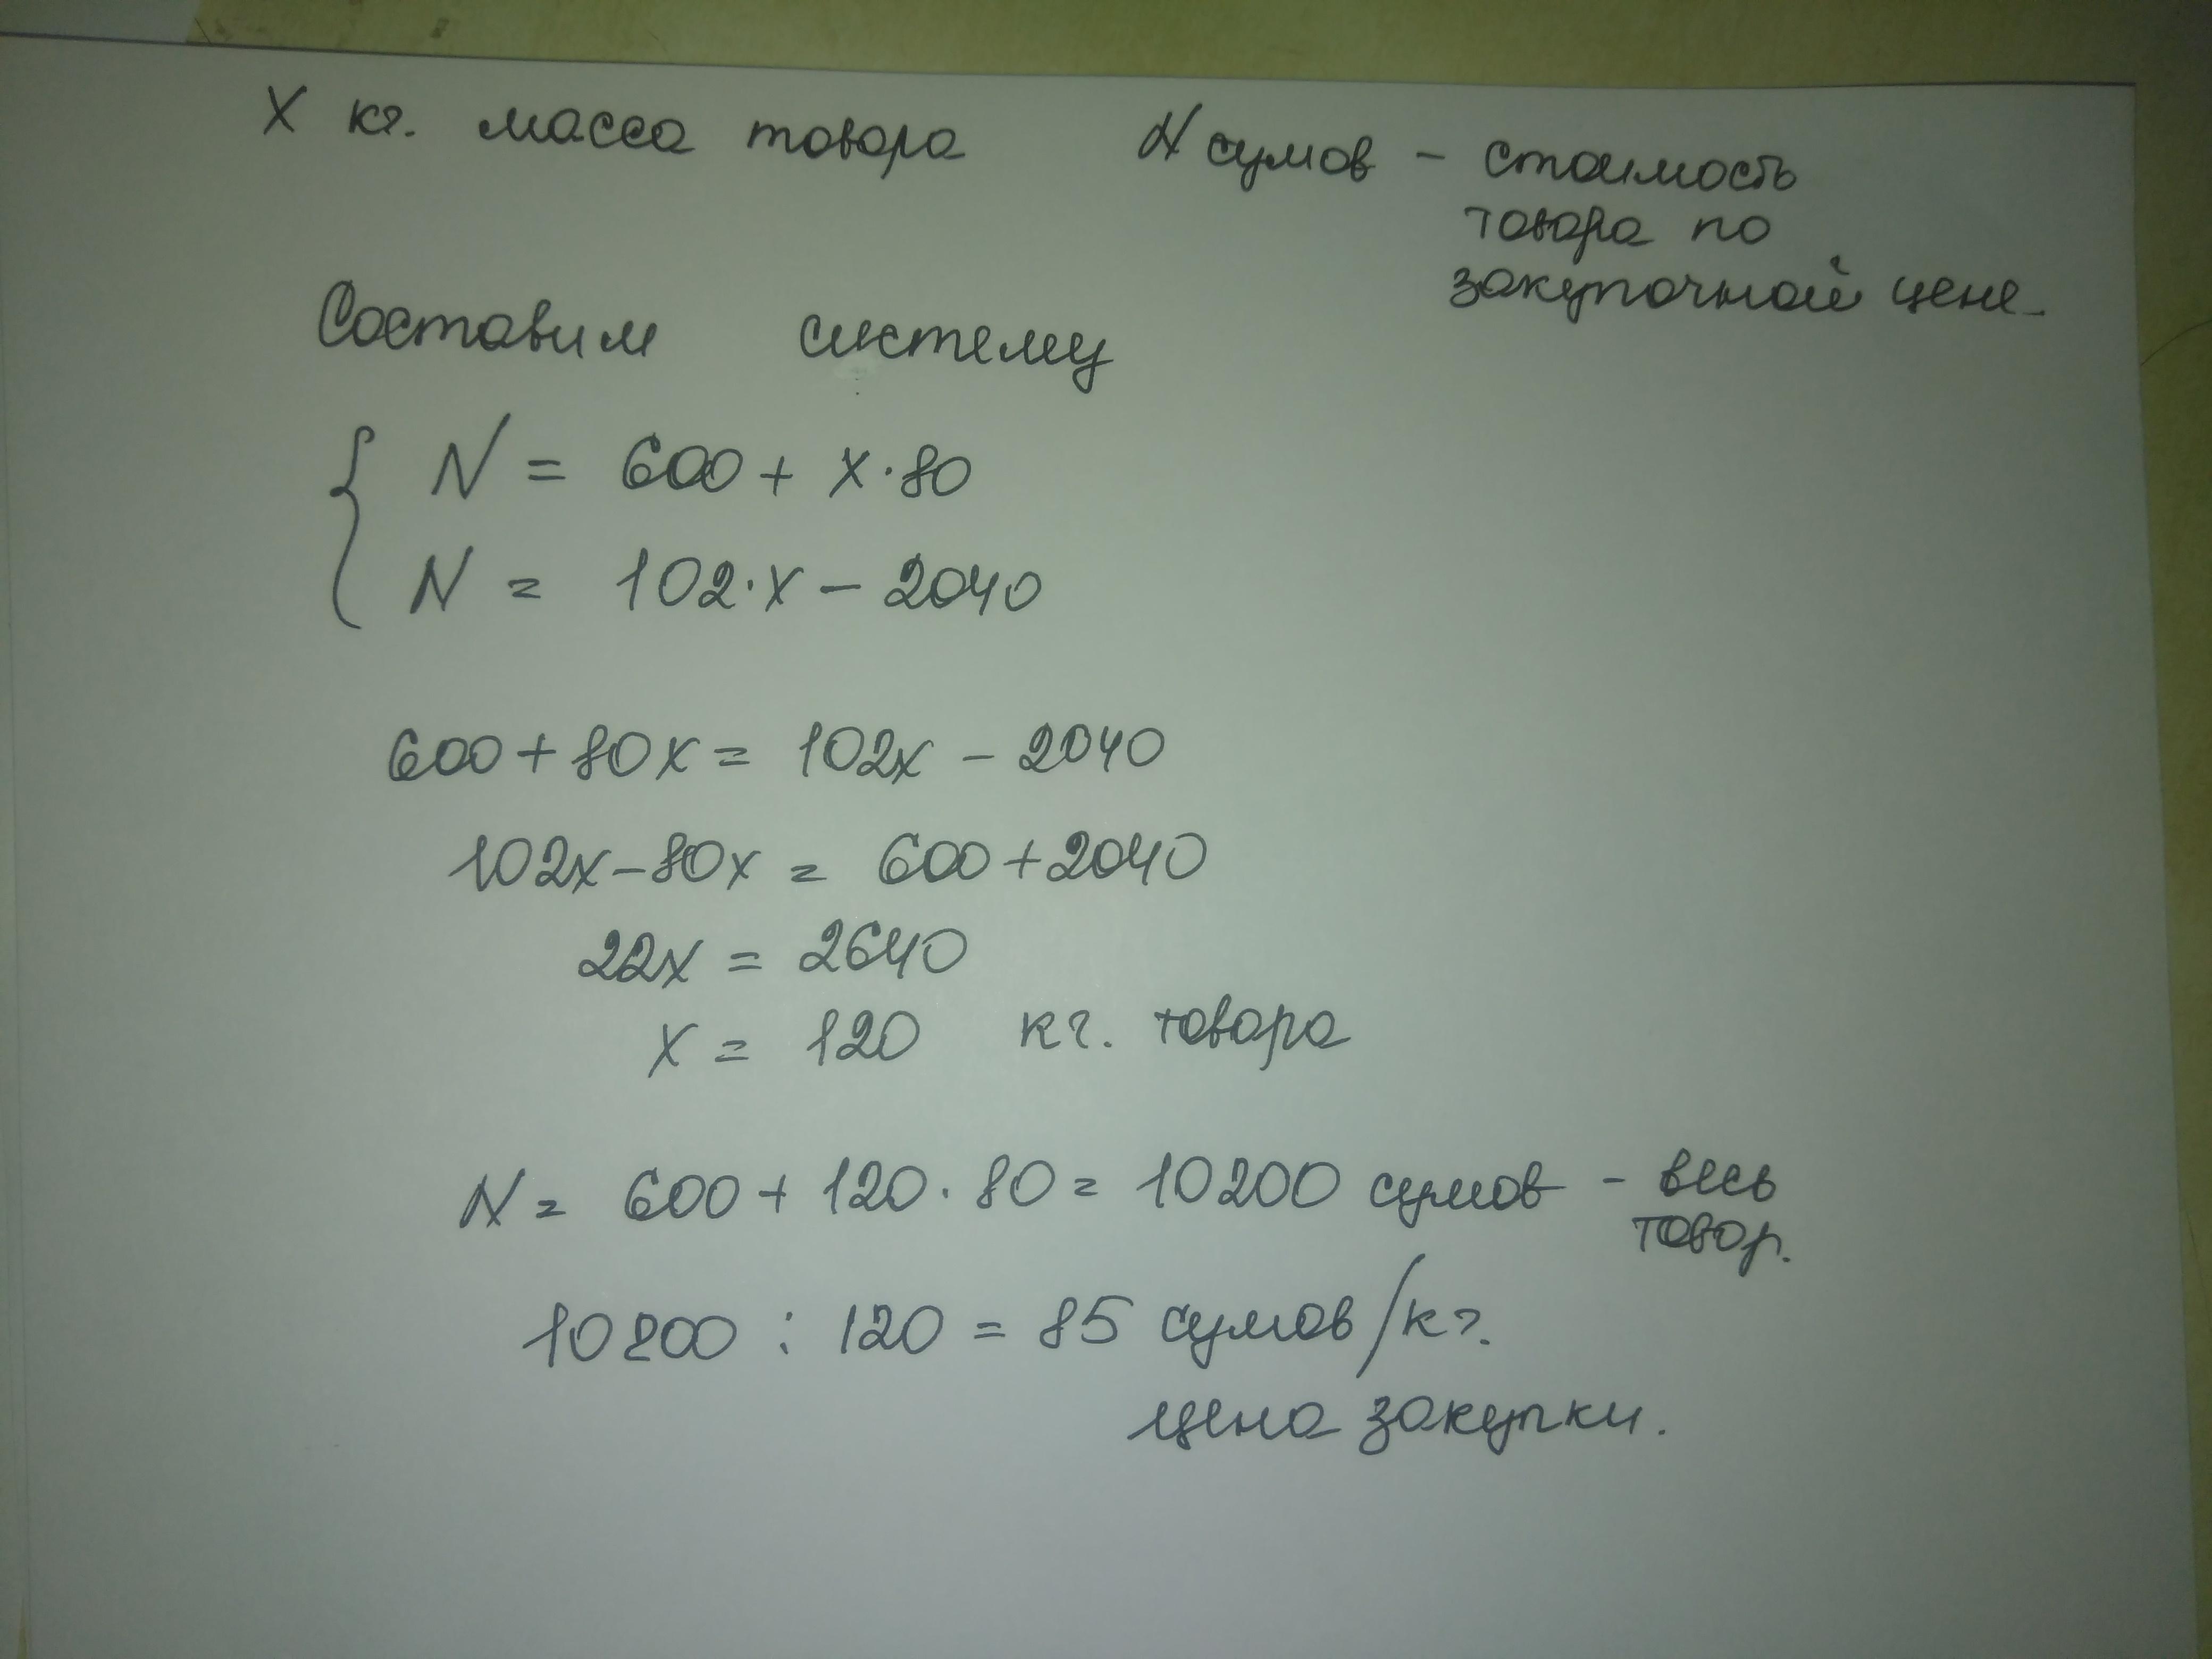 X кг. масса товара N сумов - стоимость
товара по
закупочной цене.
Составим систему
{ N = 600 + x·80
N = 102·x - 2040
600 + 80x = 102x - 2040
102x - 80x = 600 + 2040
22x = 2640
x = 120 кг. товара
N = 600 + 120·80 = 10200 сумов - весь
товар.
10200 : 120 = 85 сумов/кг.
цена закупки.